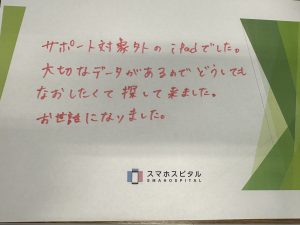 サポート対象外の iPadでした。
大切なデータがあるのでどうしても
なおしたくて 探して来ました。
お世話になりました。
スマホスピタル
SMAHOSPITAL